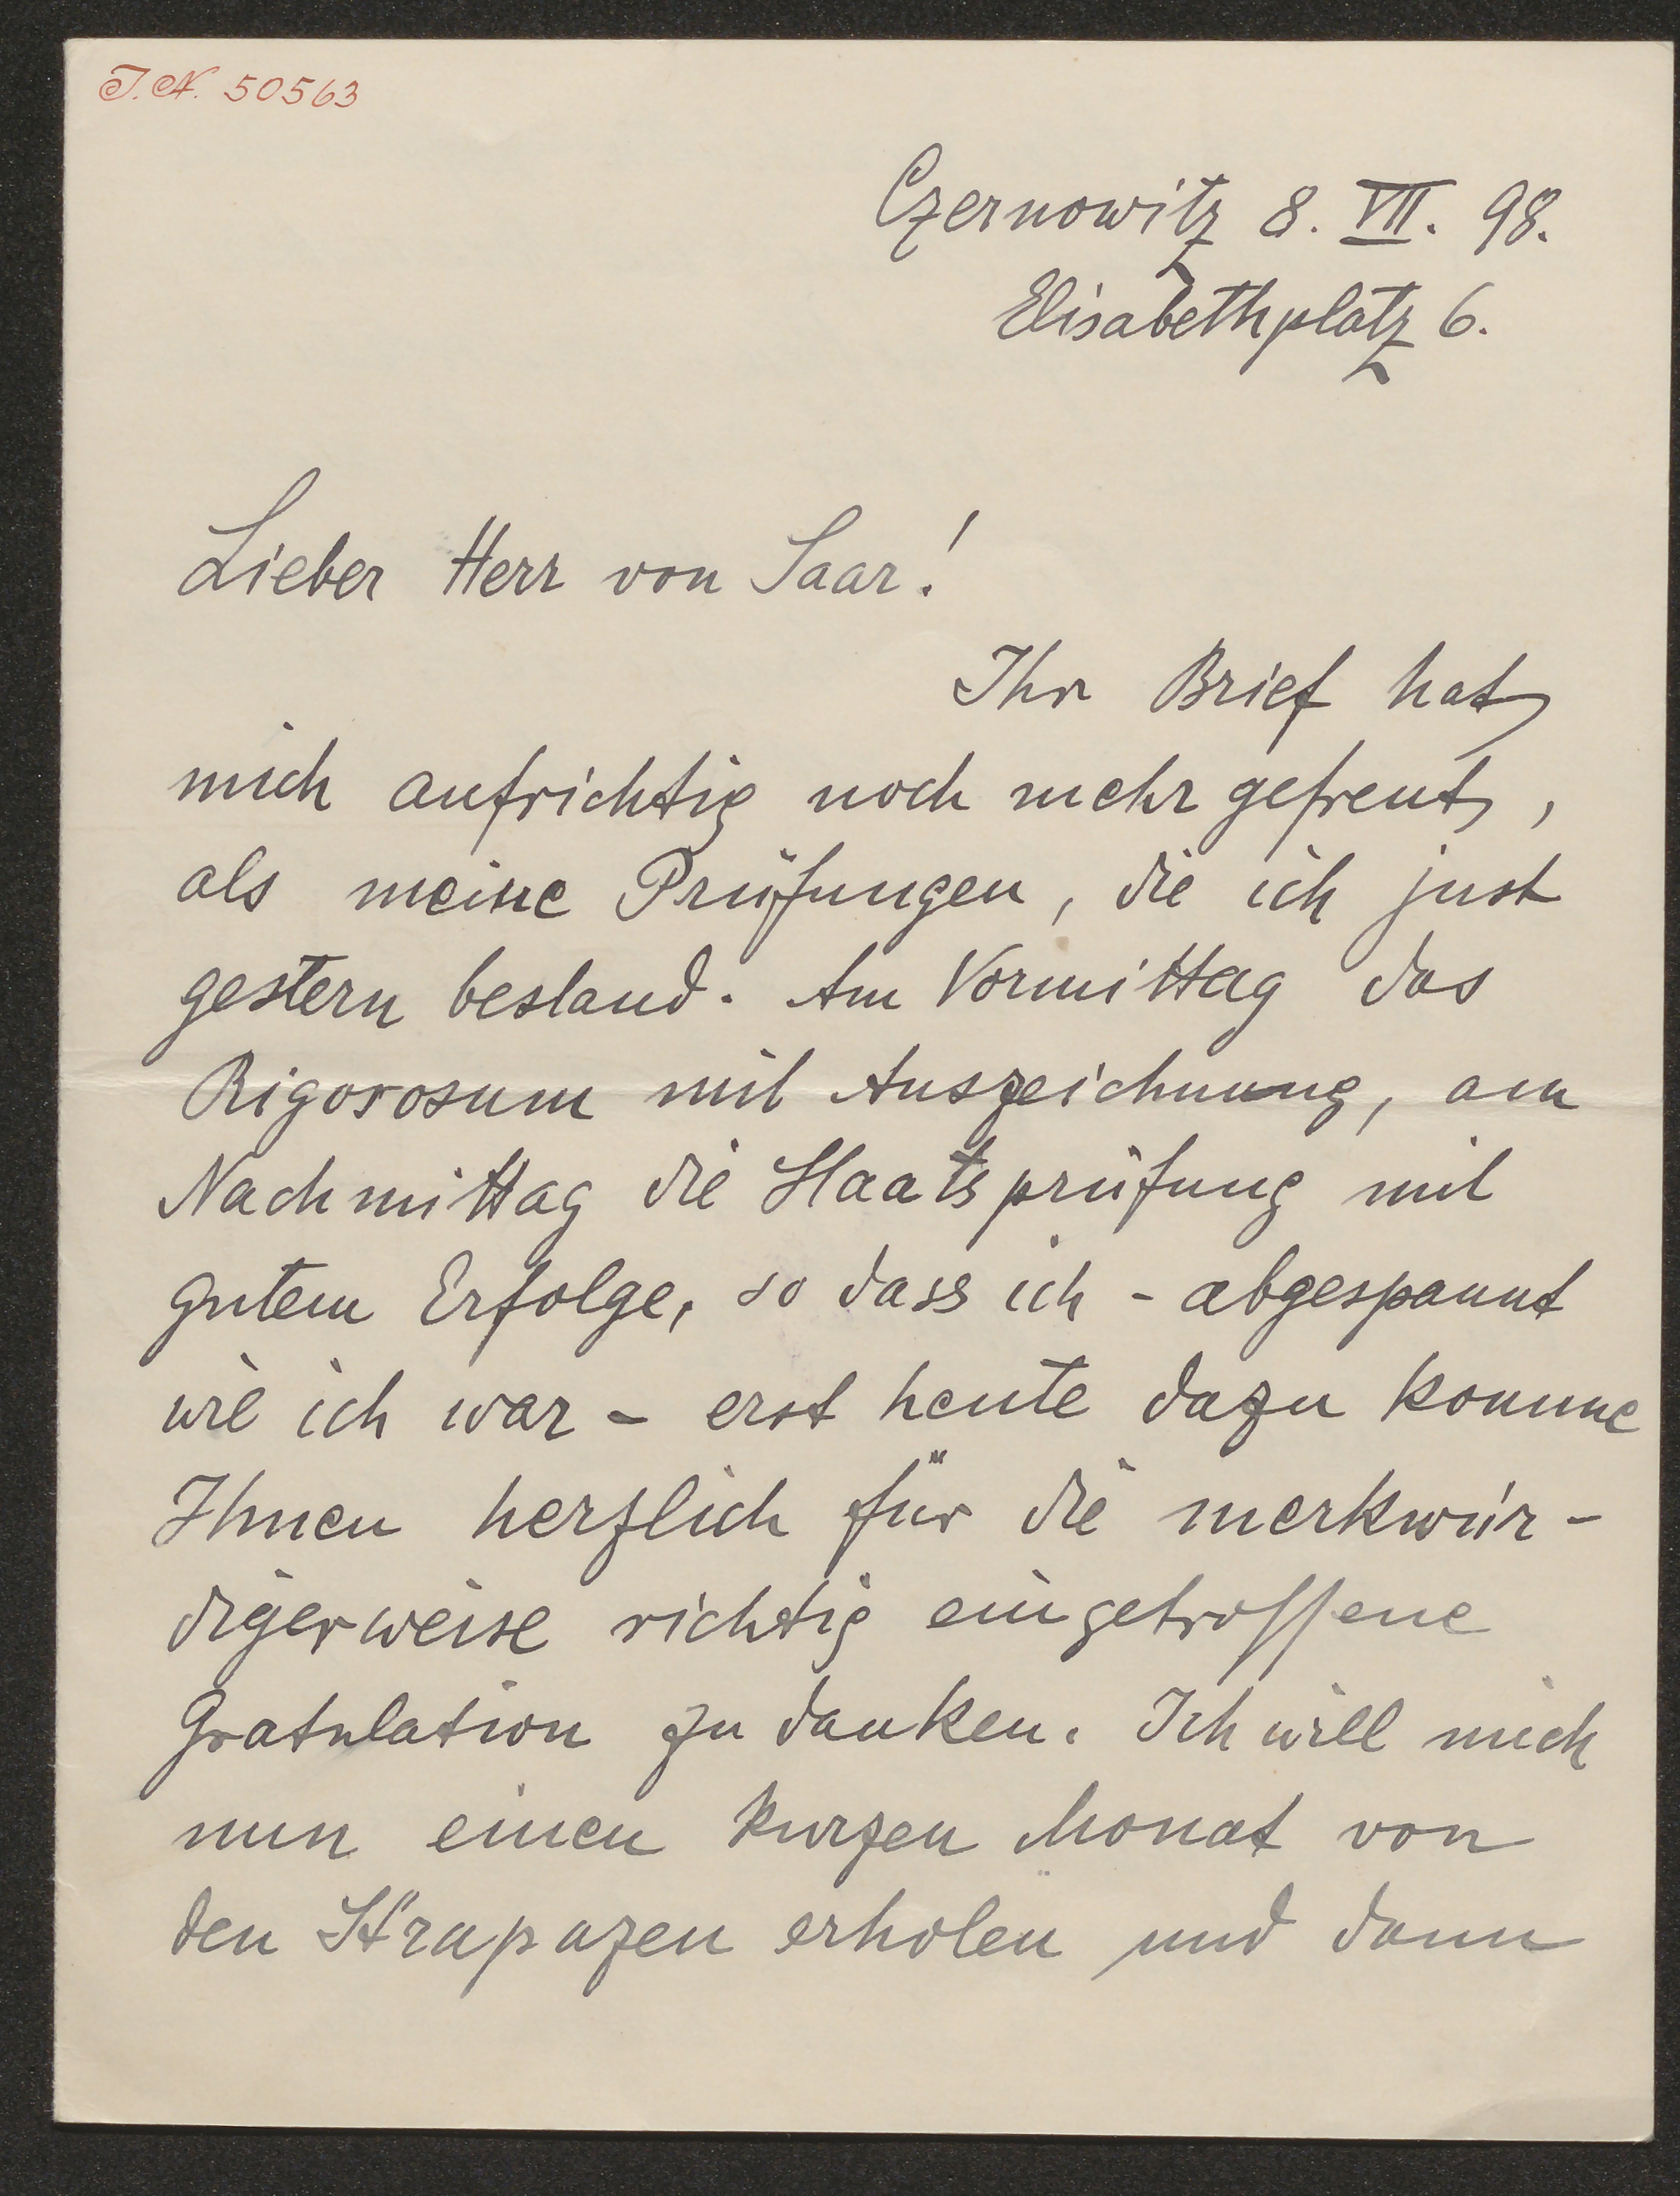 J.N. 50563
Czernowitz 8. VII. 98.
Elisabethplatz 6.
Lieber Herr von Saar!
Ihr Brief hat
mich aufrichtig noch mehr gefreut,
als meine Prüfungen, die ich just
gestern bestand. Am Vormittag das
Rigorosum mit Auszeichnung, am
Nachmittag die Staatsprüfung mit
gutem Erfolge, so dass ich - abgespannt
wie ich war - erst heute dazu komme
Ihnen herzlich für die merkwür-
digerweise richtig eingetroffene
Gratulation zu danken. Ich will mich
nun einen kurzen Monat von
den Strapazen erholen und dann